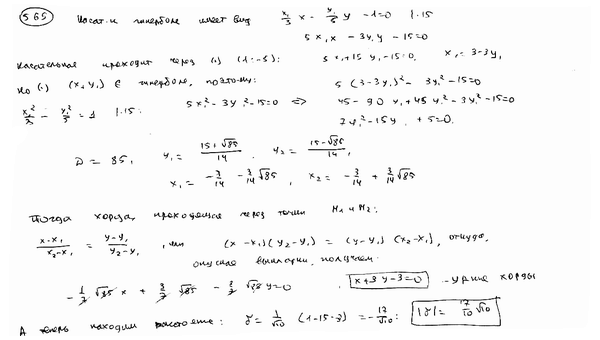 565 Касат. к гиперболе имеет вид x₁/3 x - y₁/5 y - 1=0 |·15
5x₁x - 3y₁y - 15=0
касательная проходит через (·) (1;-5): 5x₁+15y₁-15=0, x₁=3-3y₁
Но (·) (x₁y₁) ∈ гиперболе, поэтому: 5(3-3y₁)² - 3y₁²-15=0
x₁²/3 - y₁²/5 = 1 |·15 5x₁²-3y₁²-15=0 => 45-90y₁+45y₁²-3y₁²-15=0
-15y₁ +5=0.
D = 85, y₁ = (15+√85)/14, y₂ = (15-√85)/14,
x₁ = -3/14 - 3/14 √85, x₂ = -3/14 + 3/14 √85
Тогда хорда, проходящая через точки M₁ и M₂:
(x-x₁)/(x₂-x₁) = (y-y₁)/(y₂-y₁), или (x-x₁)(y₂-y₁) = (y-y₁)(x₂-x₁), откуда,
опуская выкладки, получаем:
x+3y-3=0 - ур-ние хорды
А теперь находим расстояние: δ = 1/√10 (1-15-3) = -17/√10; |δ| = 17/10 √10